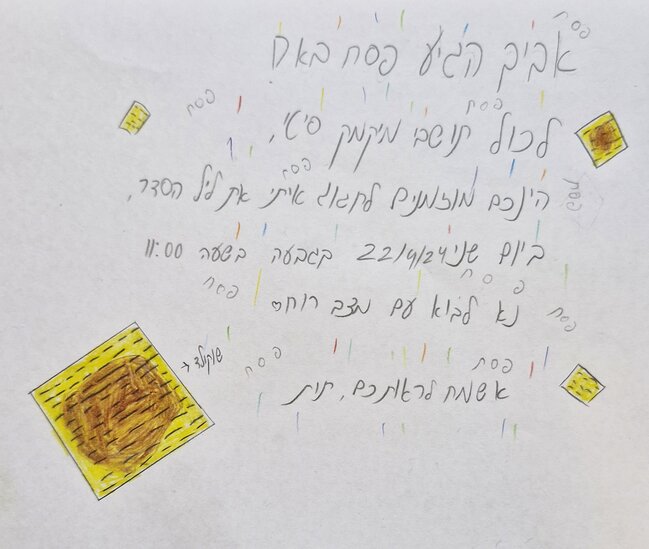 פסח
אביב הגיע פסח בא
פסח
פסח
לכול תושבי מיקמק סיטי,
פסח
הינכם מוזמנים לחגוג איתי את ליל הסדר,
פסח
ביום שני 22/4/24 בגבעה בשעה 11:00
פסח
פסח
נא לבוא עם מצב רוח♡
פסח
שוקולד
פסח
פסח
אשמח לראותכם, תות